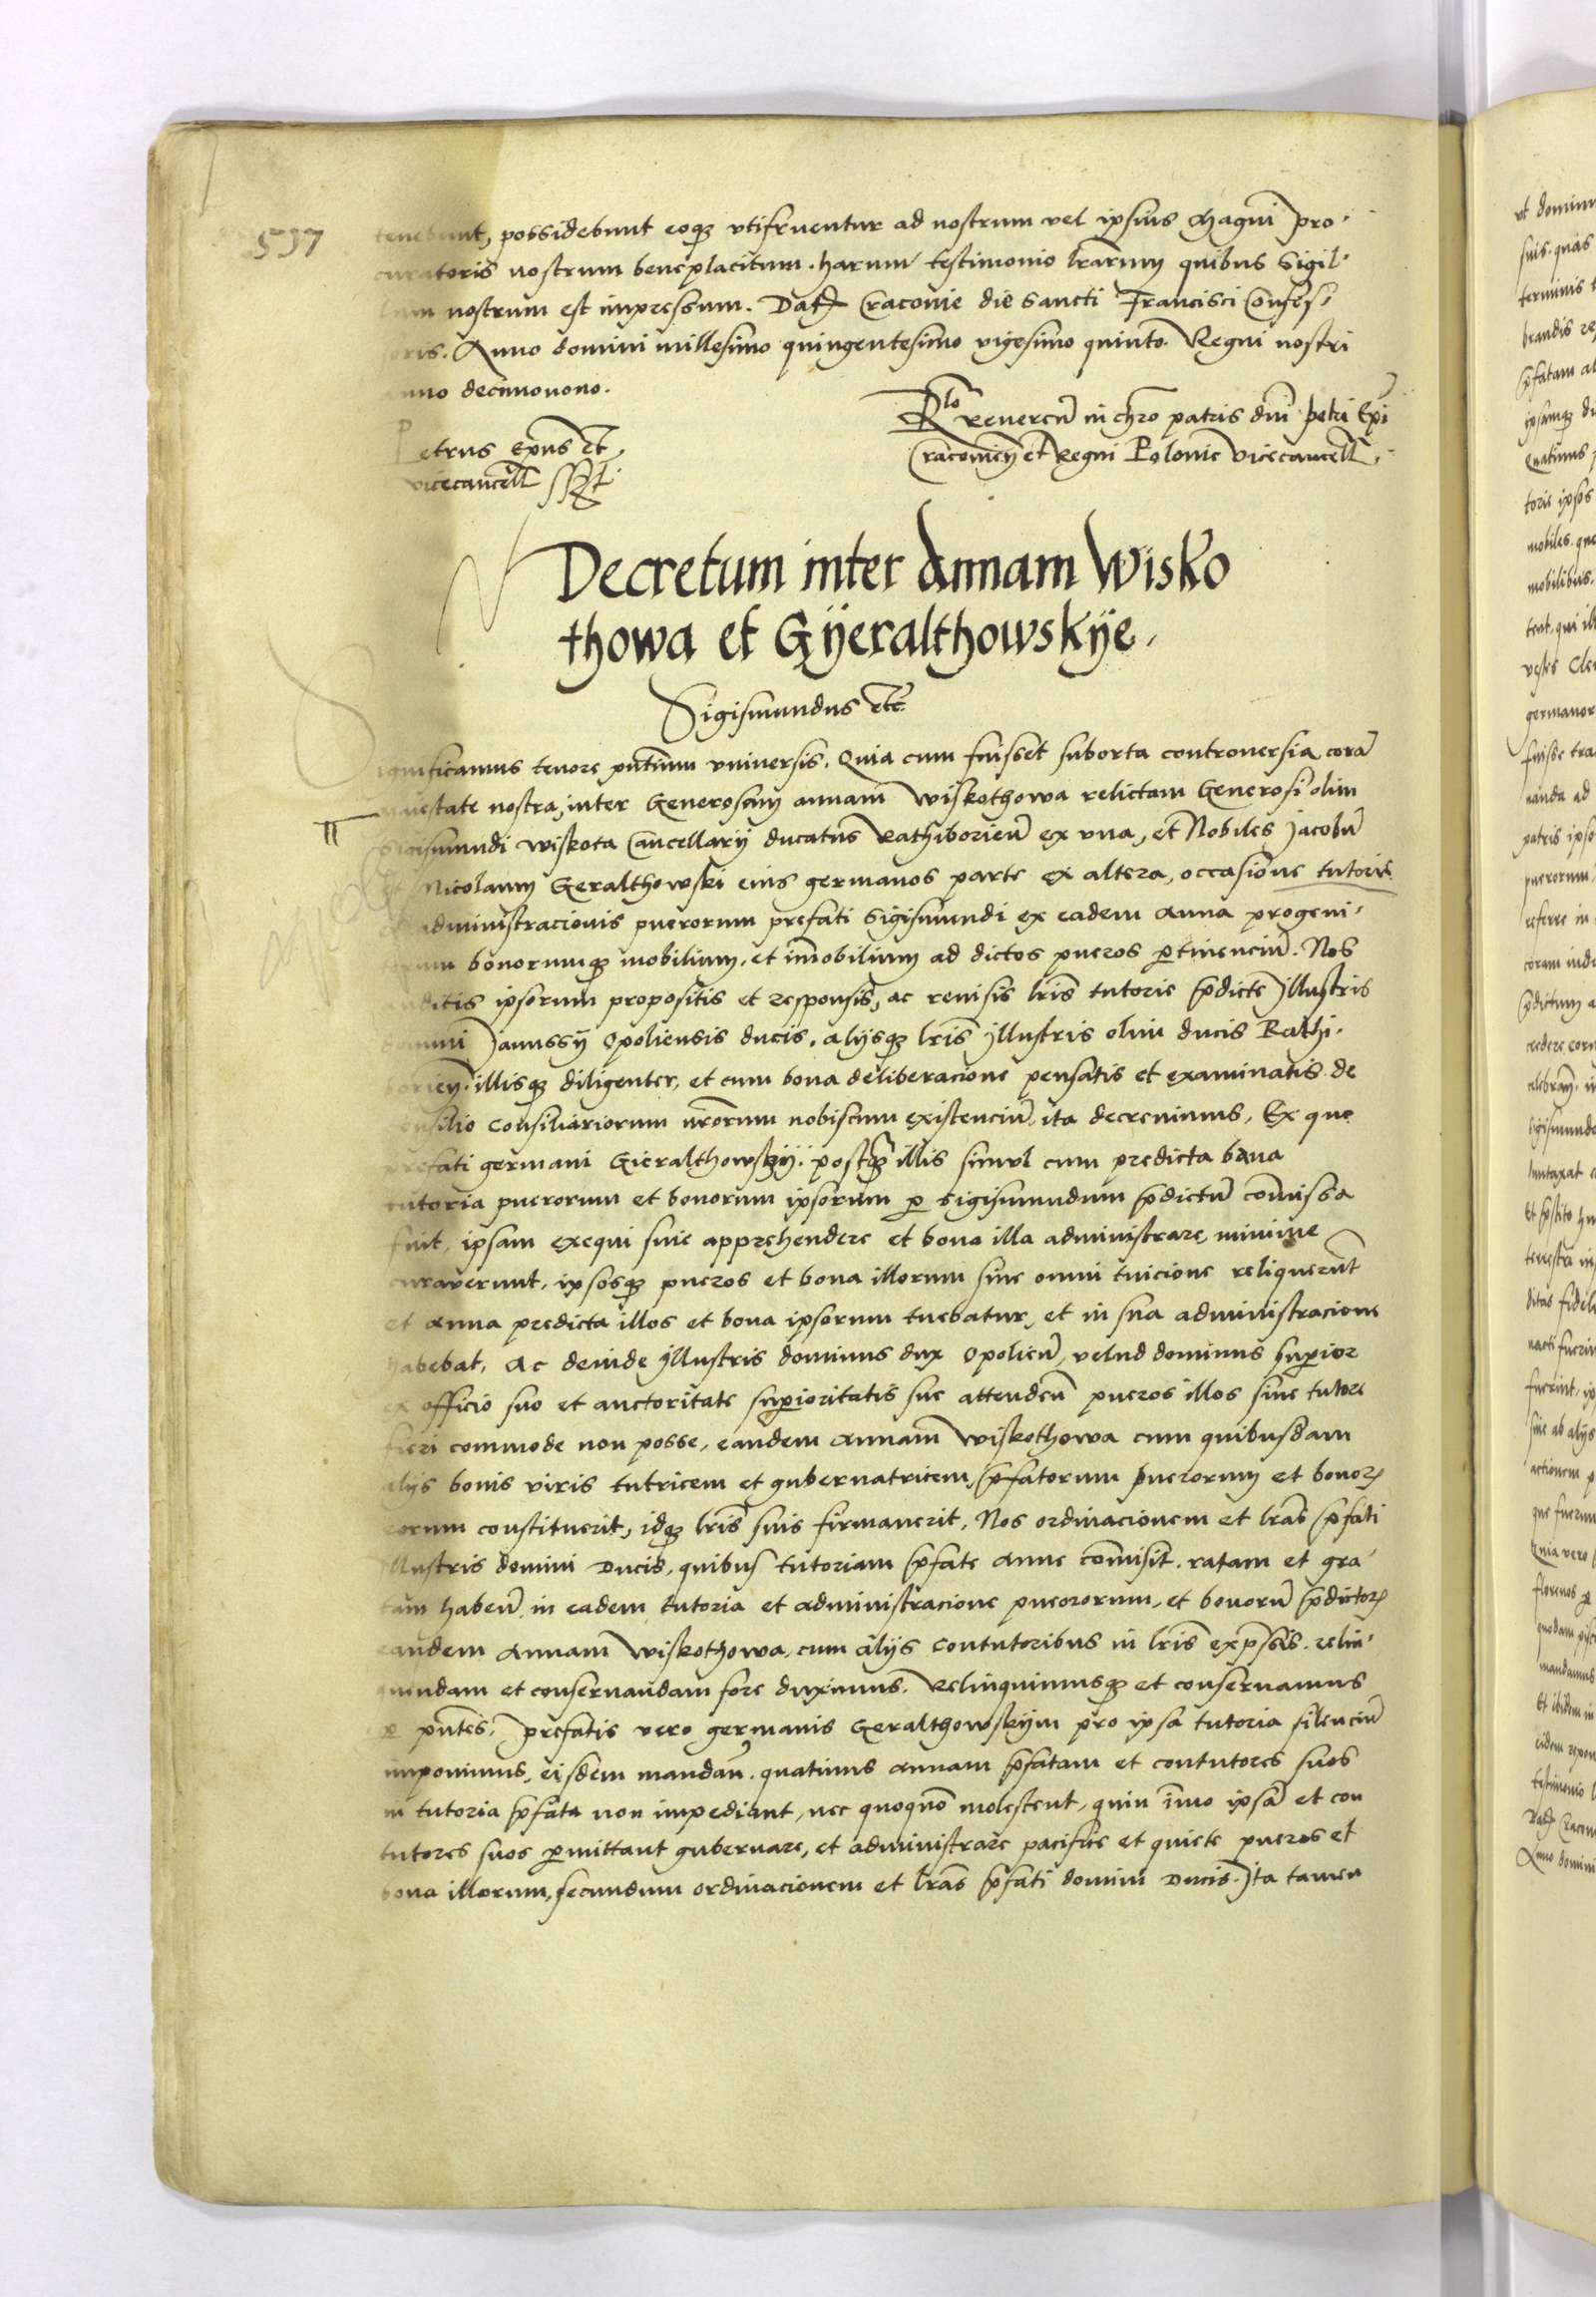 597
tenebunt, possidebunt eoqȝ vtifruentur ad nostrum vel ipsius Magni pro-
curatoris nostrum beneplacitum. harum testimonio lrārum quibus Sigil-
lum nostrum est impressum. Datȝ Cracouie die Sancti Francisci Confes-
soris. Anno domini millesimo quingentesimo vigesimo quinto. Regni nostri
anno decimonono.
Petrus Ep̄us et
vicecancell̄ sst
Rlo reuerēn̄ in ch̄ro patris dn̄i petri Ep̄i
Cracouien̄ et Regni Polonie vicecancell̄.
Decretum inter Annam Wisko
thowa et Gÿeralthowskÿe.
Sigismundus etc̄
Significamus tenore pn̄tium vniuersis. Quia cum fuisset suborta controuersia corā
maiestate nostra, inter Generosam annam Wiskothowa relictam Generosi olim
Sigismundi Wiskota Cancellarij ducatus Rathiborien̄ ex vna, et Nobiles Jacobū
et Nicolaum Geralthowski eius germanos parte ex altera, occasione tutorie
et administracionis puerorum prefati Sigismundi ex eadem Anna progeni-
torum bonorumqȝ mobilium, et im̄obilium ad dictos pueros ꝑtinenciū. Nos
auditis ipsorum propositis et responsis, ac reuisis lr̄is tutorie p̄dicte Illustris
domini Janussij Opoliensis ducis, alijsqȝ lr̄is Illustris olim ducis Rathi-
borien̄. illisqȝ diligenter, et cum bona deliberacione pensatis et examinatis de
consilio Consiliariorum nr̄orum nobiscum existenciū, ita decreuimus, Ex quo
prefati germani Gieralthowskij. postqȝ illis simul cum predicta bana
tutoria puerorum et bonorum ipsorum ꝑ Sigismundum p̄dictū com̄issa
fuit, ipsam exequi siue apprehendere et bona illa administrare, minime
curauerunt, ipsosqȝ pueros et bona illorum sine omni tuicione reliquerūt
et Anna predicta illos et bona ipsorum tuebatur, et in sua administracione
habebat, Ac deinde Illustris dominus dux Opolien̄, velud dominus suꝑior
ex officio suo et auctoritate suꝑioritatis sue attenden̄ pueros illos sine tutore
fieri commode non posse, eandem Annam Wiskothowa cum quibusdam
alijs bonis viris tutricem et gubernatricem p̄fatorum puerorum et bonoꝝ
eorum constituerit, idqȝ lr̄is suis firmauerit, Nos ordinacionem et lr̄as p̄fati
Illustris domini Ducis, quibus tutoriam p̄fate Anne com̄isit. ratam et gra-
tam haben̄ in eadem tutoria et administracione pueororum, et bonorū p̄dictoꝝ
eandem Annam Wiskothowa, cum alijs Contutoribus in lr̄is exp̄ssis. relin-
quendam et conseruandam fore duximus. Relinquimusqȝ et conseruamus
ꝑ pn̄tes. prefatis vero germanis Geralthowskijm pro ipsa tutoria silenciū
imponimus, eisdem mandan̄. quatinus Annam p̄fatam et contutores suos
in tutoria p̄fata non impediant, nec quoquō molestent, quin im̄o ipsā et con
tutores suos ꝑmittant gubernare, et administrare pacifice et quiete pueros et
bona illorum, secundum ordinacionem et lr̄as p̄fati domini Ducis. Ita tamen